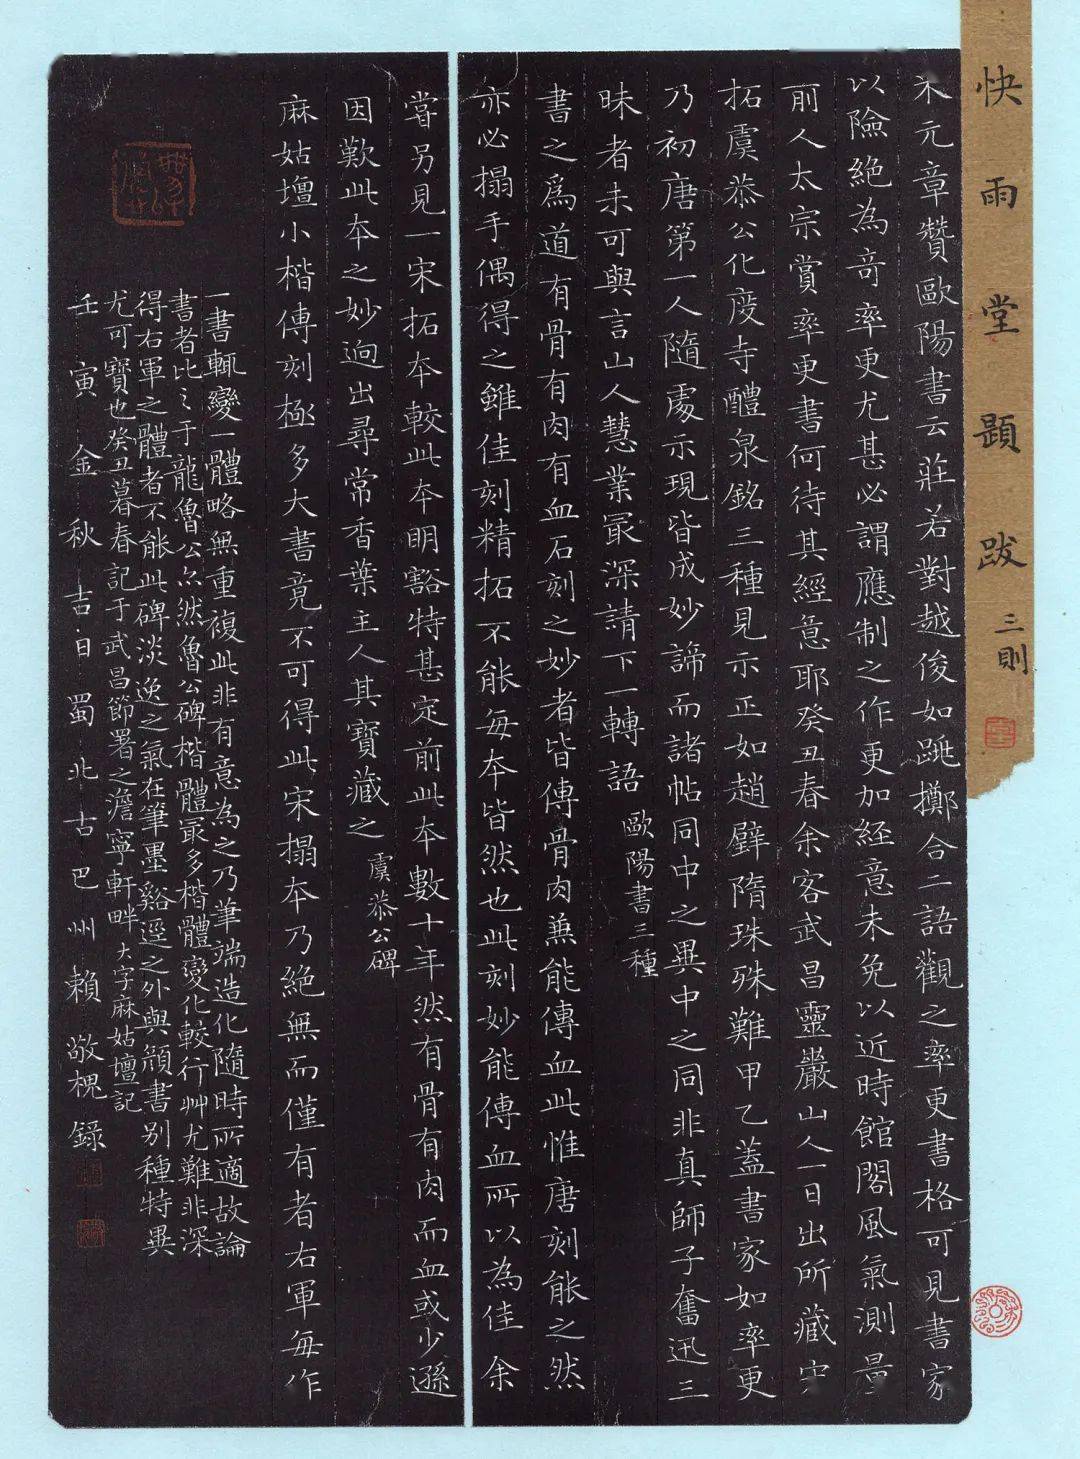 快雨堂題跋 三則
米元章贊歐陽書云莊若對越俊如跳擲合二語觀之率更書格可見書家
以險絕為奇率更尤甚必謂應制之作更加經意未免以近時館閣風氣測量
前人太宗賞率更書何待其經意耶癸丑春余客武昌靈巖山人一日出所藏宋
拓虞恭公化度寺醴泉銘三種見示正如趙璧隋珠殊難甲乙蓋書家如率更
乃初唐第一人隨處示現皆成妙諦而諸帖同中之異中之同非真師子奮迅三
昧者未可與言山人慧業最深請下一轉語 歐陽書三種
書之為道有骨有肉有血石刻之妙者皆傳骨肉兼能傳血此惟唐刻能之然
亦必搨手偶得之雖佳刻精拓不能每本皆然也此刻妙能傳血所以為佳余
嘗另見一宋拓本較此本明豁特甚定前此本數十年然有骨有肉而血或少遜
因歎此本之妙迥出尋常香葉主人其寶藏之 虞恭公碑
麻姑壇小楷傳刻極多大書竟不可得此宋搨本乃絕無而僅有者右軍每作
一書輒變一體略無重複此非有意為之乃筆端造化隨時所適故論
書者比之于龍魯公亦然魯公碑楷體最多楷體變化較行艸尤難非深
得右軍之體者不能此碑淡逸之氣在筆墨谿逕之外與顏書别種特異
尤可寶也癸丑暮春記于武昌節署之澹寧軒畔 大字麻姑壇記
壬寅金秋吉日蜀北古巴州賴敬槐錄